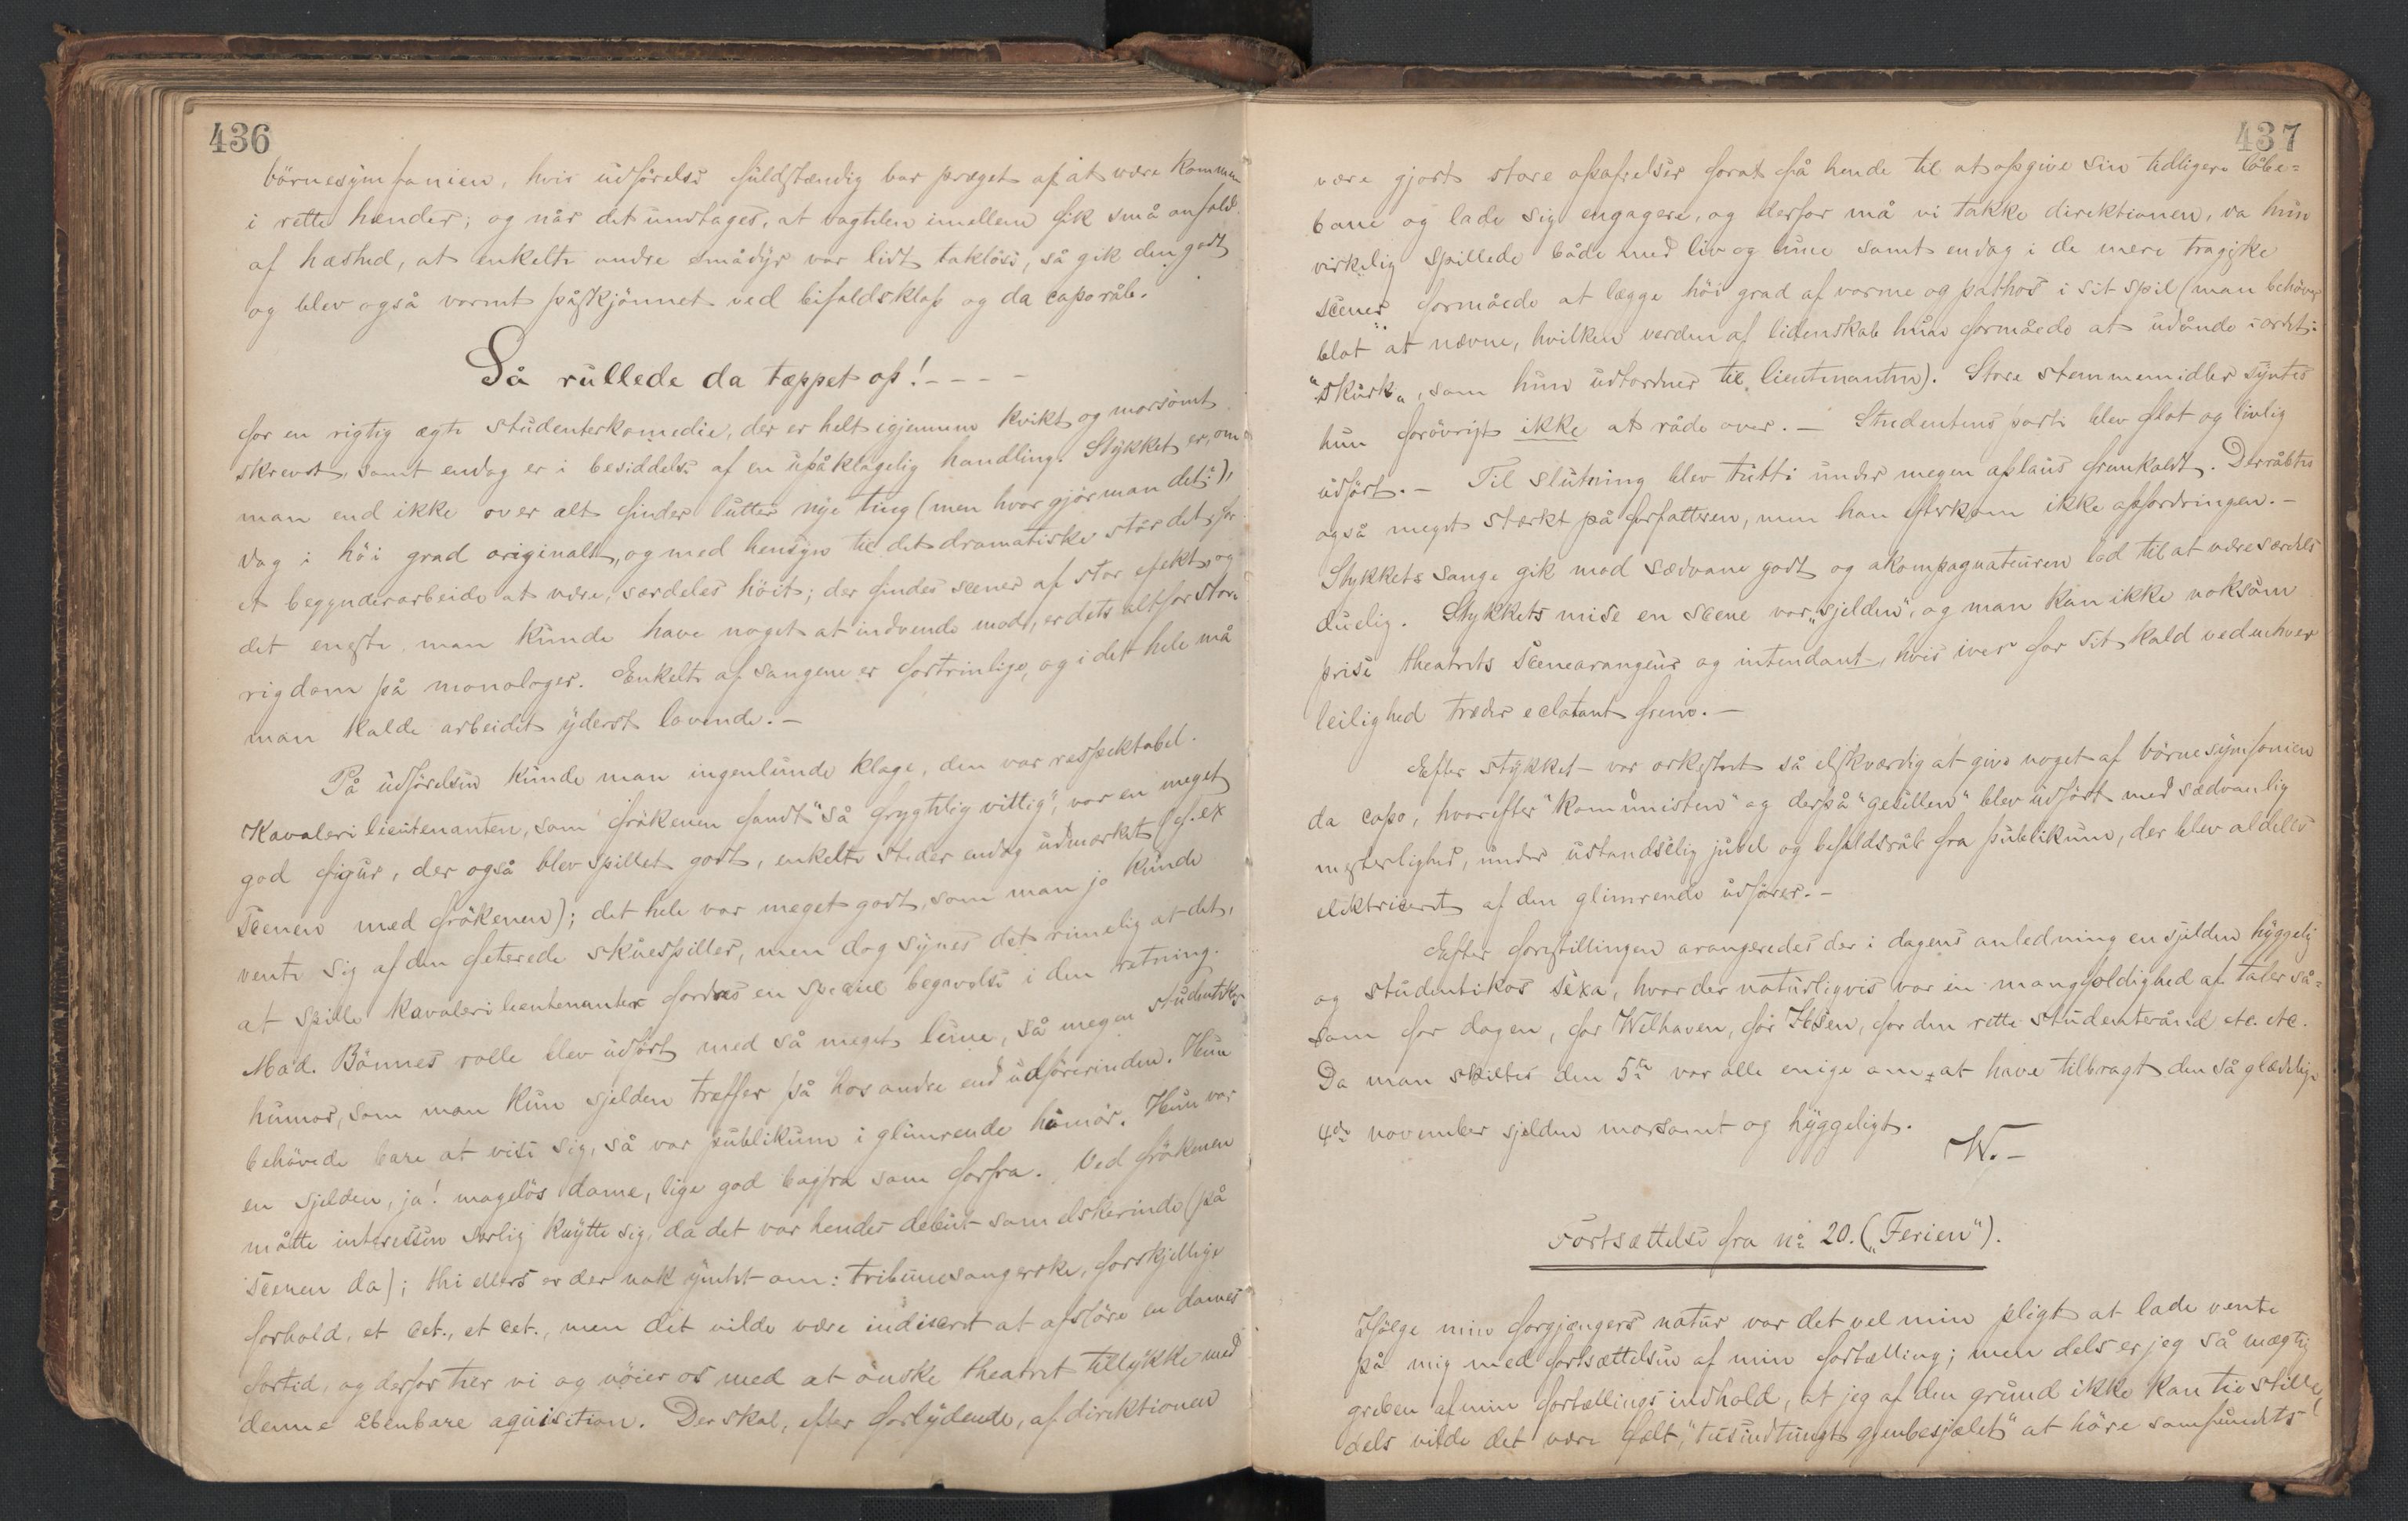 436
börnesymfonien, hvis udförelse fuldstændig bar præget af at være kommen
i rette hænder; og når det undtages, at vagtelen imellem fik små anfald
af hæshed, at enkelte andre smådyr var lidt taktlöse, så gik den godt
og blev også varmt påskjönnet ved bifaldsklap og da caporåb.
Så rullede da tæppet op! - - - -
for en rigtig ægte studenterkomedie, der er helt igjennem kvikt og morsomt
skrevet, samt endog er i besiddelse af en upåklagelig handling. Stykket er, om
man end ikke over alt finder lutter nye ting (men hvor gjör man det?),
dog i höi grad originalt, og med hensyn til det dramatiske står det, for
et begynderarbeide at være, særdeles höit; der findes scener af stor efekt, og
det eneste man kunde have noget at indvende mod, er dets altfor store
rigdom på monologer. Enkelte af sangene er fortrinlige, og i det hele må
man kalde arbeidet yderst lovende. -
På udförelsen kunde man ingenlunde klage, den var respektabel.
Kavalerilieutenanten, som frökenen fandt "så frygtelig vittig", var en meget
god figur, der også blev spillet godt, enkelte steder endog udmærket (f. ex
scenen med frökenen); det hele var meget godt, som man jo kunde
vente sig af den feterede skuespiller, men dog synes det rimelig at det,
at spille kavalerilieutenanter fordres en speciel begavelse i den retning.
Mad. Bönnes rolle blev udfört med så meget lune, så megen studentikos
humor, som man kun sjelden træffer på hos andre end udförerinden. Hun
behövede bare at vise sig, så var publikum i glimrende humör. Hun var
en sjelden, ja! mageløs dame, lige god bagfra som forfra. Ved frökenen
måtte interessen særlig knytte sig, da det var hendes debut som elskerinde (på
scenen da); thi ellers er der nok ymtet om: tribunesangerske, forskjellige
forhold, et cet., et cet., men det vilde være indiscret at aflöre en dames
fortid, og derfor tier vi og nöier os med at önske theatret tillykke med
denne åbenbare aquisition. Der skal, efter forlydende, af direktionen
437
være gjort store opofrelser forat få hende til at opgive sin tidligere löbe=
bane og lade sig engagere, og derfor må vi takke direktionen, da hun
virkelig spillede både med liv og lune samt endog i de mere tragiske
scener formåede at lægge höi grad af varme og pathos i sit spil (man behöver
blot at nævne, hvilken verden af lidenskab hun formåede at udånde i ordet:
"skurk", som hun udtordner til lieutenanten). Store stemmemidler syntes
hun forövrigt ikke at råde over. - Studentens parti blev flot og livlig
udfört. - Til slutning blev tutti under megen aplaus fremkaldt. Der råbtes
også meget stærkt på forfatteren, men han efterkom ikke opfordringen. -
Stykkets sange gik mod sædvane godt og akompagnateuren lod til at være særdeles
duelig. Stykkets mise en scene var "sjelden", og man kan ikke noksom
prise theatrets scenearangeur og intendant, hvis iver for sit kald ved enhver
leilighed træder eclatant frem. -
Efter stykket var orkestret så elskværdig at give noget af börnesymfonien
da capo, hvorefter "komunisten" og derpå "gesellen" blev udfört med sædvanlig
mesterlighed, under ustandselig jubel og bifaldsråb fra publikum, der blev aldeles
elektriseret af den glimrende udförer. -
Efter forestillingen arangeredes der i dagens anledning en sjelden hyggelig
og studentikos sexa, hvor der naturligvis var en mangfoldighed af taler så=
som for dagen, for Welhaven, for Ibsen, for den rette studenterånd etc. etc.
Da man skiltes den 5te var alle enige om at have tilbragt den så glædelige
4de november sjelden morsomt og hyggeligt.
W. -
Fortsættelse fra no 20. ("Ferien").
Ifölge min forgjængers natur var det vel min pligt at lade vente
på mig med fortsættelsen af min fortælling; men dels er jeg så mægtig
greben af min fortællings indhold, at jeg af den grund ikke kan tie stille,
dels vilde det være fælt, "tusindtungt gjenbesjælet" at höre samfundets